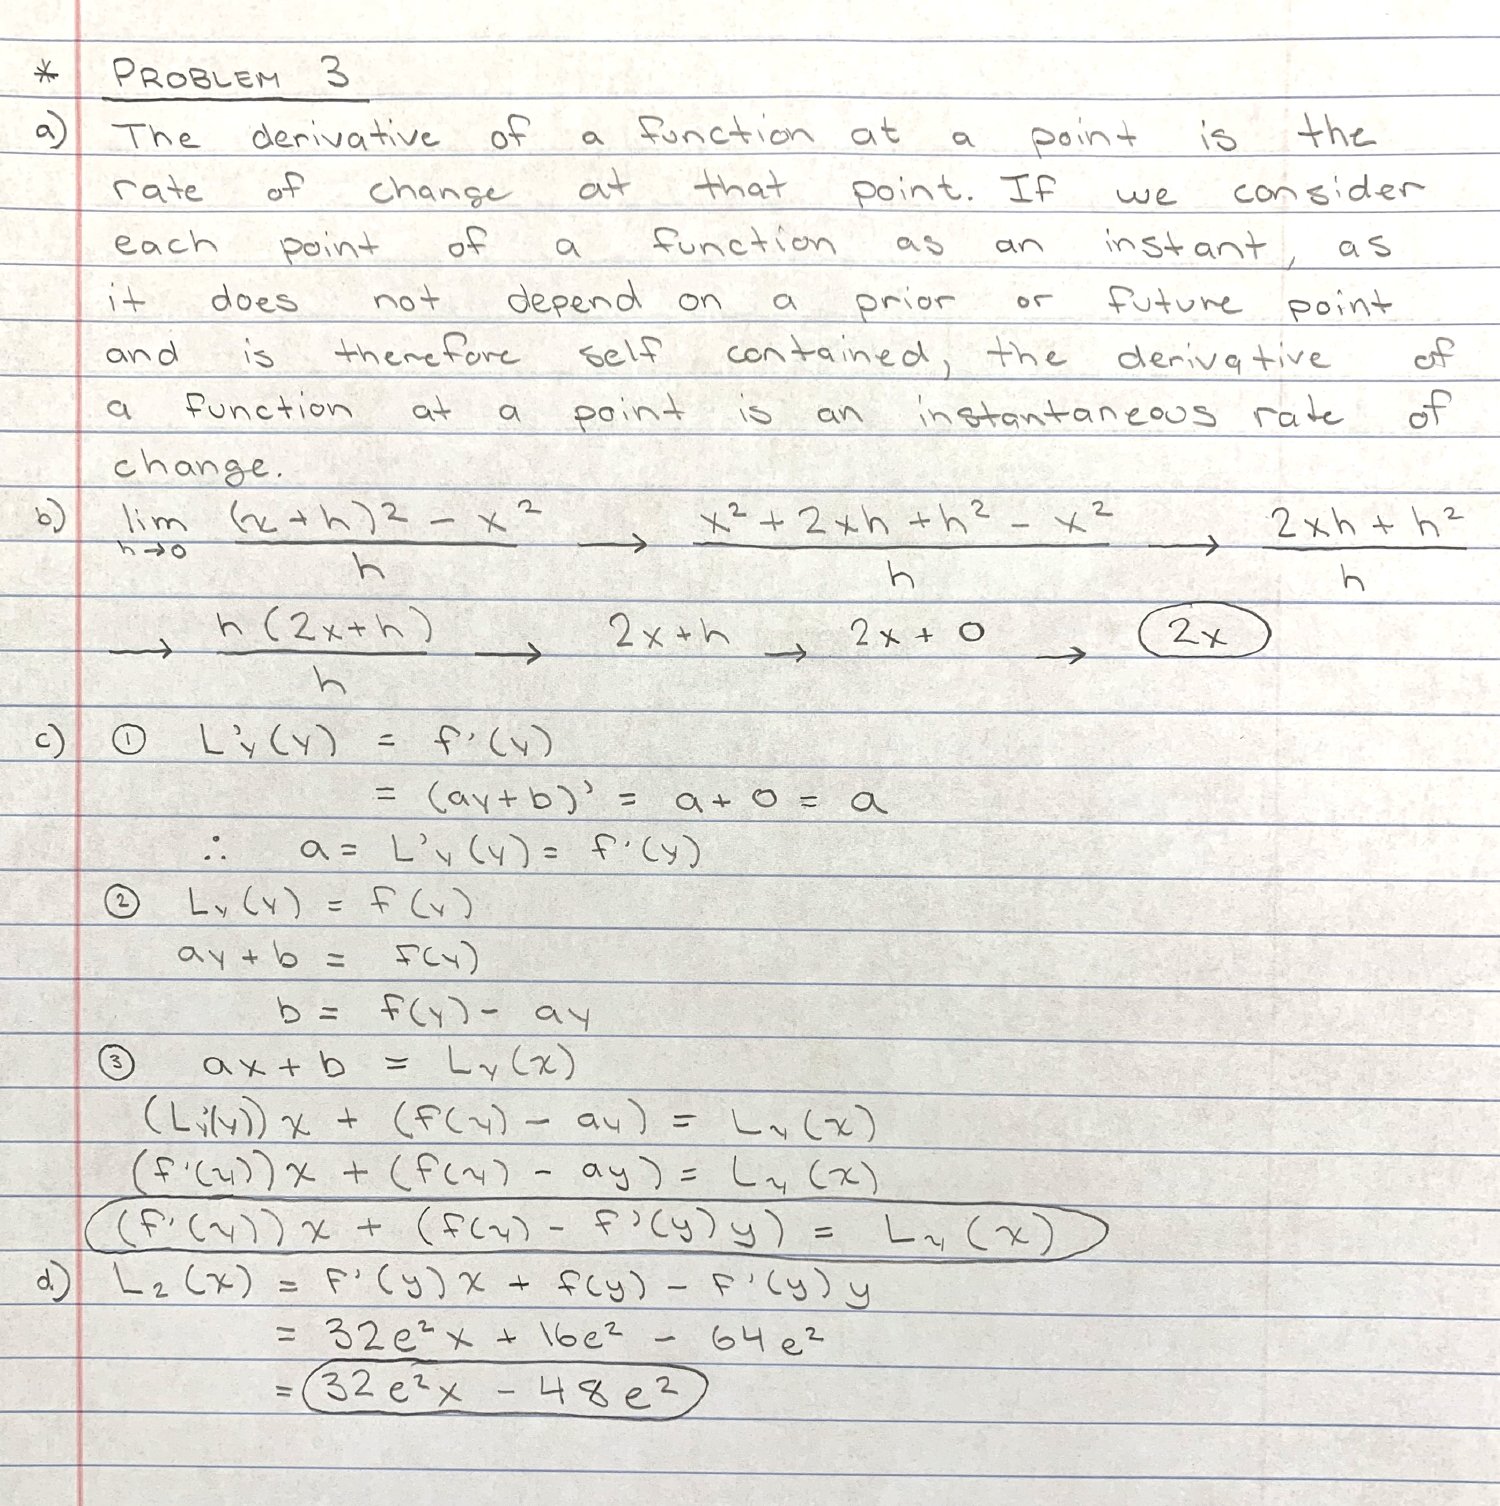 * PROBLEM 3
a) The derivative of a function at a point is the
rate of change at that point. If we consider
each point of a function as an instant, as
it does not depend on a prior or future point
and is therefore self contained, the derivative of
a function at a point is an instantaneous rate of
change.
b) lim h→0 ((x+h)² - x²)/h → (x² + 2xh + h² - x²)/h → (2xh + h²)/h
→ h(2x+h)/h → 2x+h → 2x + 0 → 2x
c) ① L'y(y) = f'(y)
= (ay+b)' = a + 0 = a
∴ a = L'y(y) = f'(y)
② Ly(y) = f(y)
ay + b = f(y)
b = f(y) - ay
③ ax + b = Ly(x)
(L'y(y))x + (f(y) - ay) = Ly(x)
(f'(y))x + (f(y) - ay) = Ly(x)
(f'(y))x + (f(y) - f'(y)y) = Ly(x)
d) L₂(x) = f'(y)x + f(y) - f'(y)y
= 32e²x + 16e² - 64e²
= 32e²x - 48e²